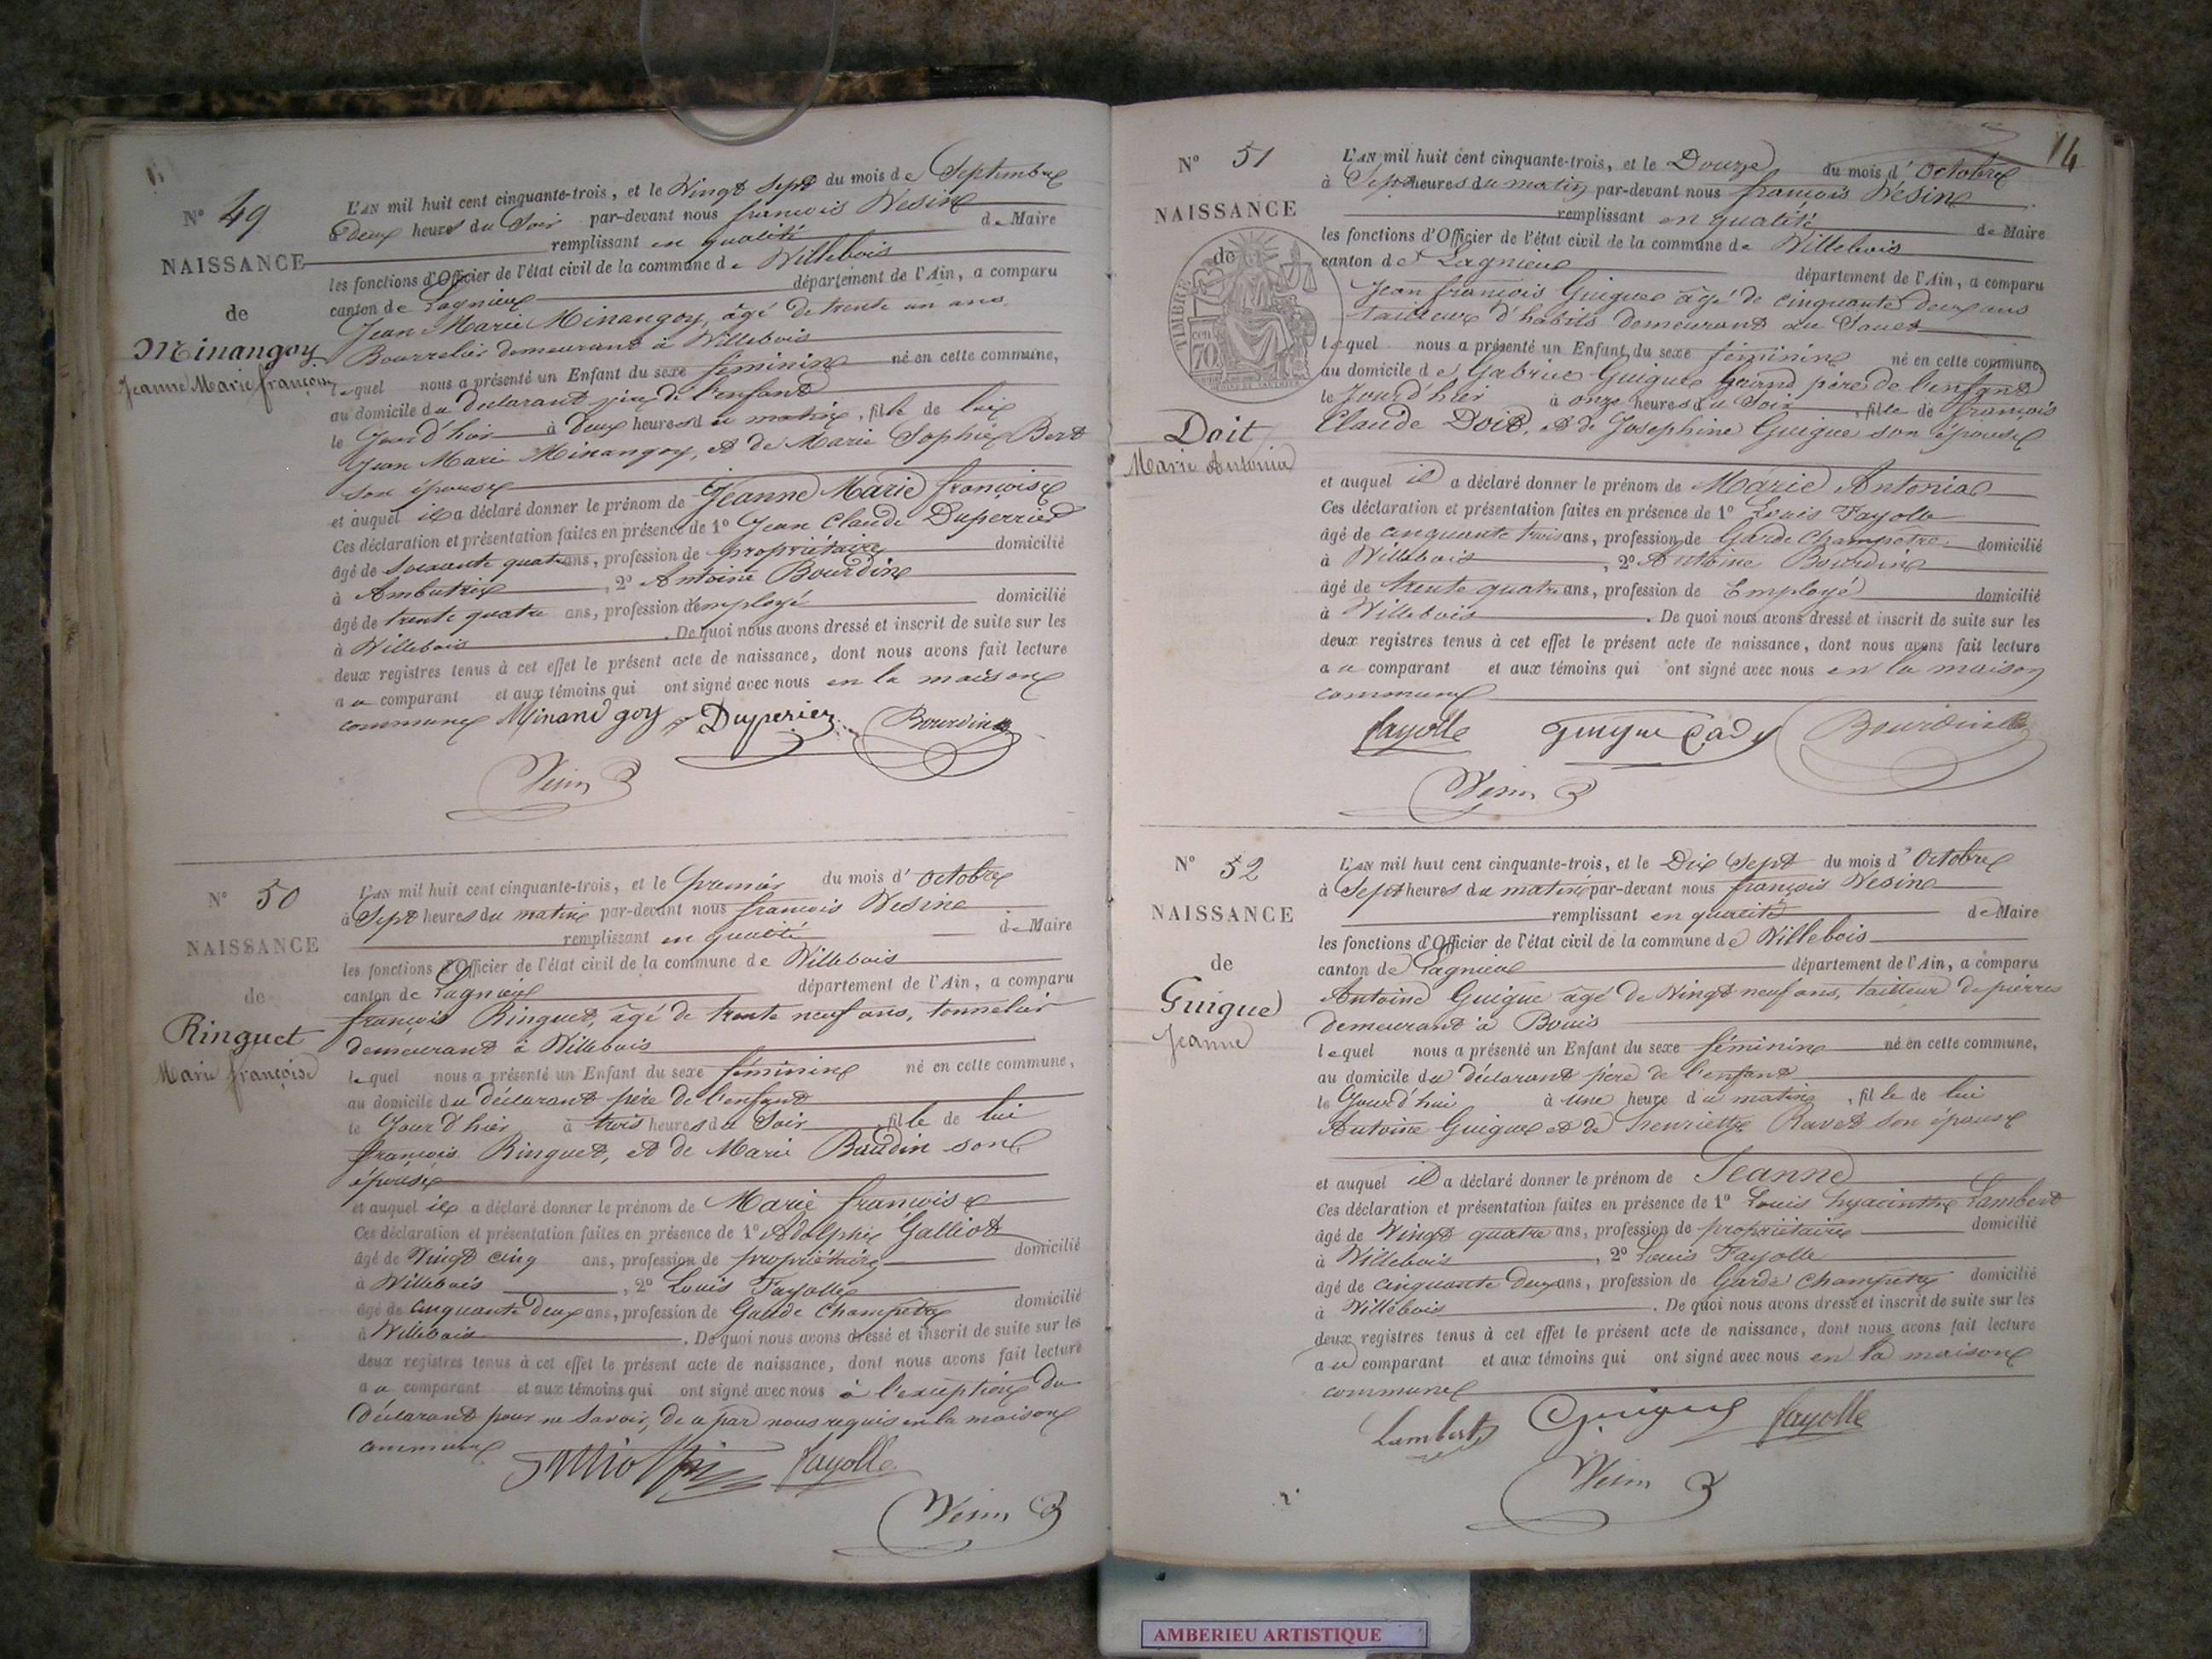 N° 49
NAISSANCE
de
Minangoy
Jeanne Marie françoise
L'AN mil huit cent cinquante-trois, et le Vingt Sept du mois de Septembre
à Deux heures du Soir par-devant nous françois Vesine
remplissant en qualité de Maire
les fonctions d'Officier de l'état civil de la commune de Villebois
canton de Lagnieux département de l'Ain, a comparu
Jean Marie Minangoy, âgé de trente un ans
Bourrelier demeurant à Villebois
lequel nous a présenté un Enfant du sexe féminine né en cette commune,
au domicile du déclarant père de l'enfant
le Jour d'hier à Deux heures du matin, fille de lui
Jean Marie Minangoy, et de Marie Sophie Bert
son épouse
et auquel il a déclaré donner le prénom de Jeanne Marie françoise
Ces déclaration et présentation faites en présence de 1° Jean Claude Duperrier
âgé de soixante quatre ans, profession de propriétaire domicilié
à Ambutrix, 2° Antoine Bourdine
âgé de trente quatre ans, profession d'employé domicilié
à Villebois. De quoi nous avons dressé et inscrit de suite sur les
deux registres tenus à cet effet le présent acte de naissance, dont nous avons fait lecture
au comparant et aux témoins qui ont signé avec nous en la maison
commune Minandgoy Duperier Bourdin
Vesin
N° 50
NAISSANCE
de
Ringuet
Marie françoise
L'AN mil huit cent cinquante-trois, et le premier du mois d'octobre
à Sept heures du matin par-devant nous françois Vesine
remplissant en qualité de Maire
les fonctions d'Officier de l'état civil de la commune de Villebois
canton de Lagnieux département de l'Ain, a comparu
françois Ringuet, âgé de trente neuf ans, tonnelier
demeurant à Villebois
lequel nous a présenté un Enfant du sexe féminine né en cette commune,
au domicile du déclarant père de l'enfant
le Jour d'hier à trois heures du Soir, fille de lui
françois Ringuet, et de Marie Baudin son
épouse
et auquel il a déclaré donner le prénom de Marie françoise
Ces déclaration et présentation faites en présence de 1° Adolphe Galliot
âgé de Vingt cinq ans, profession de propriétaire domicilié
à Villebois, 2° Louis Fayolle
âgé de cinquante deux ans, profession de Garde Champetre domicilié
à Villebois. De quoi nous avons dressé et inscrit de suite sur les
deux registres tenus à cet effet le présent acte de naissance, dont nous avons fait lecture
au comparant et aux témoins qui ont signé avec nous à l'exception du
Déclarant pour ne savoir, de ce par nous requis en la maison
commune fayolle
Vesin
14
N° 51
NAISSANCE
de
TIMBRE
70
Doit
Marie Antonia
L'AN mil huit cent cinquante-trois, et le Douze du mois d'octobre
à Sept heures du matin par-devant nous françois Vesine
remplissant en qualité de Maire
les fonctions d'Officier de l'état civil de la commune de Villebois
canton de Lagnieux département de l'Ain, a comparu
Jean françois Guigue âgé de cinquante deux ans
tailleur d'habits demeurant au Sault
lequel nous a présenté un Enfant du sexe féminine né en cette commune,
au domicile de Gabriel Guigue Grand père de l'enfant
le Jour d'hier à onze heures du Soir, fille de françois
Claude Doit, et de Josephine Guigue son épouse
et auquel il a déclaré donner le prénom de Marie Antonia
Ces déclaration et présentation faites en présence de 1° Louis Fayolle
âgé de cinquante trois ans, profession de Garde Champetre domicilié
à Villebois, 2° Antoine Bourdine
âgé de trente quatre ans, profession de Employé domicilié
à Villebois. De quoi nous avons dressé et inscrit de suite sur les
deux registres tenus à cet effet le présent acte de naissance, dont nous avons fait lecture
au comparant et aux témoins qui ont signé avec nous en la maison
commune
fayolle guigue Cady Bourdin
Vesin
N° 52
NAISSANCE
de
Guigue
Jeanne
L'AN mil huit cent cinquante-trois, et le Dix Sept du mois d'octobre
à Sept heures du matin par-devant nous françois Vesine
remplissant en qualité de Maire
les fonctions d'Officier de l'état civil de la commune de Villebois
canton de Lagnieux département de l'Ain, a comparu
Antoine Guigue âgé de Vingt neuf ans, tailleur de pierres
demeurant à Bouis
lequel nous a présenté un Enfant du sexe féminine né en cette commune,
au domicile du déclarant père de l'enfant
le Jour d'hui à une heure du matin, fille de lui
Antoine Guigue et de henriette Ravet son épouse
et auquel il a déclaré donner le prénom de Jeanne
Ces déclaration et présentation faites en présence de 1° Louis hyacinthe Lambert
âgé de Vingt quatre ans, profession de propriétaire domicilié
à Villebois, 2° Louis Fayolle
âgé de cinquante deux ans, profession de Garde Champetre domicilié
à Villebois. De quoi nous avons dressé et inscrit de suite sur les
deux registres tenus à cet effet le présent acte de naissance, dont nous avons fait lecture
au comparant et aux témoins qui ont signé avec nous en la maison
commune
Lambert Guigue fayolle
Vesin
AMBERIEU ARTISTIQUE